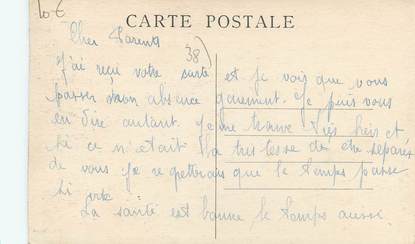 10 €
CARTE POSTALE
Cher Parents
38)
J'ai reçu votre carte et je vois que vous
passer mon absence gaiement. Je puis vous
en dire autant. Je me trouve très heis et
si ce n'était la tristesse des être séparés
de vous je regretterais que le temps passe
si vite.
La santé est bonne le temps aussi.